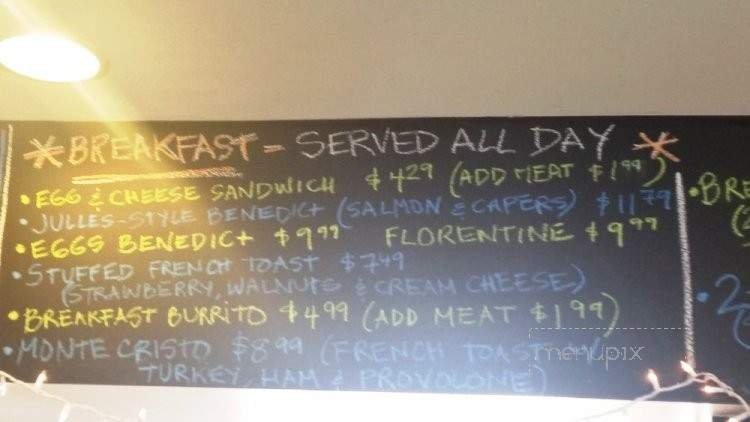 * BREAKFAST - SERVED ALL DAY *
• EGG & CHEESE SANDWICH $4.29 (ADD MEAT $1.99)
• JULLES-STYLE BENEDICT (SALMON & CAPERS) $11.79
• EGGS BENEDICT $9.99 FLORENTINE $9.99
• STUFFED FRENCH TOAST $7.49
(STRAWBERRY, WALNUTS & CREAM CHEESE)
• BREAKFAST BURRITO $4.99 (ADD MEAT $1.99)
• MONTE CRISTO $8.99 (FRENCH TOAST
TURKEY, HAM & PROVOLONE)
• BRE
• 2
menupix